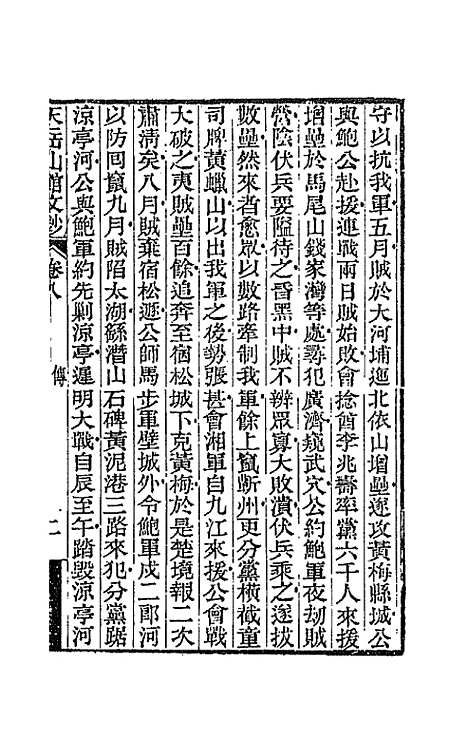 守以抗我軍五月賊於大河埔迤北依山增壘逐攻黃梅縣城公
與鮑公赴援連戰兩日賊始敗會捻酋李兆壽率黨六千人來援
增壘於馬尾山錢家灣等處尋犯廣濟窺武穴公約鮑軍夜劫賊
營陰伏兵要隘待之昏黑中賊不辨眾寡大敗潰伏兵乘之遂拔
數壘然來者愈眾以數路牽制我軍餘上竄蘄州更分黨橫截童
司牌黃蠟山以出我軍之後勢張甚會湘軍自九江來援公會戰
大破之夷賊壘百餘追奔至宿松城下克黃梅於是楚境報二次
肅清矣八月賊棄宿松遯公師馬步軍壁城外令鮑軍戍二郎河
以防回竄九月賊陷太湖繇潛山石碑黃泥港三路來犯分黨踞
涼亭河公與鮑軍約先剿涼亭遲明大戰自辰至午踏毀涼亭河
天岳山館文鈔 卷八 傳 二